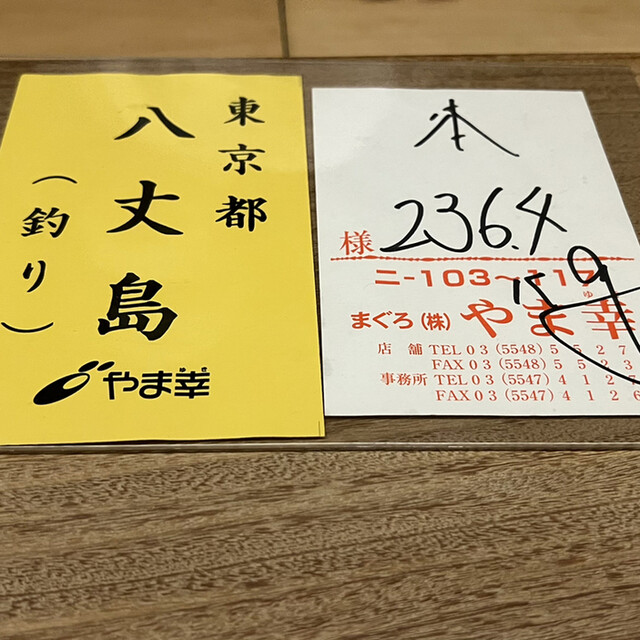 東京都
八丈島
(釣り)
やま幸
本
様 236.4
Kg
ニ-103~117
まぐろ(株) やま幸
ゆき
店舗 TEL 03 (5548) 5527
FAX 03 (5548) 5523
事務所 TEL 03 (5547) 4127
FAX 03 (5547) 4126